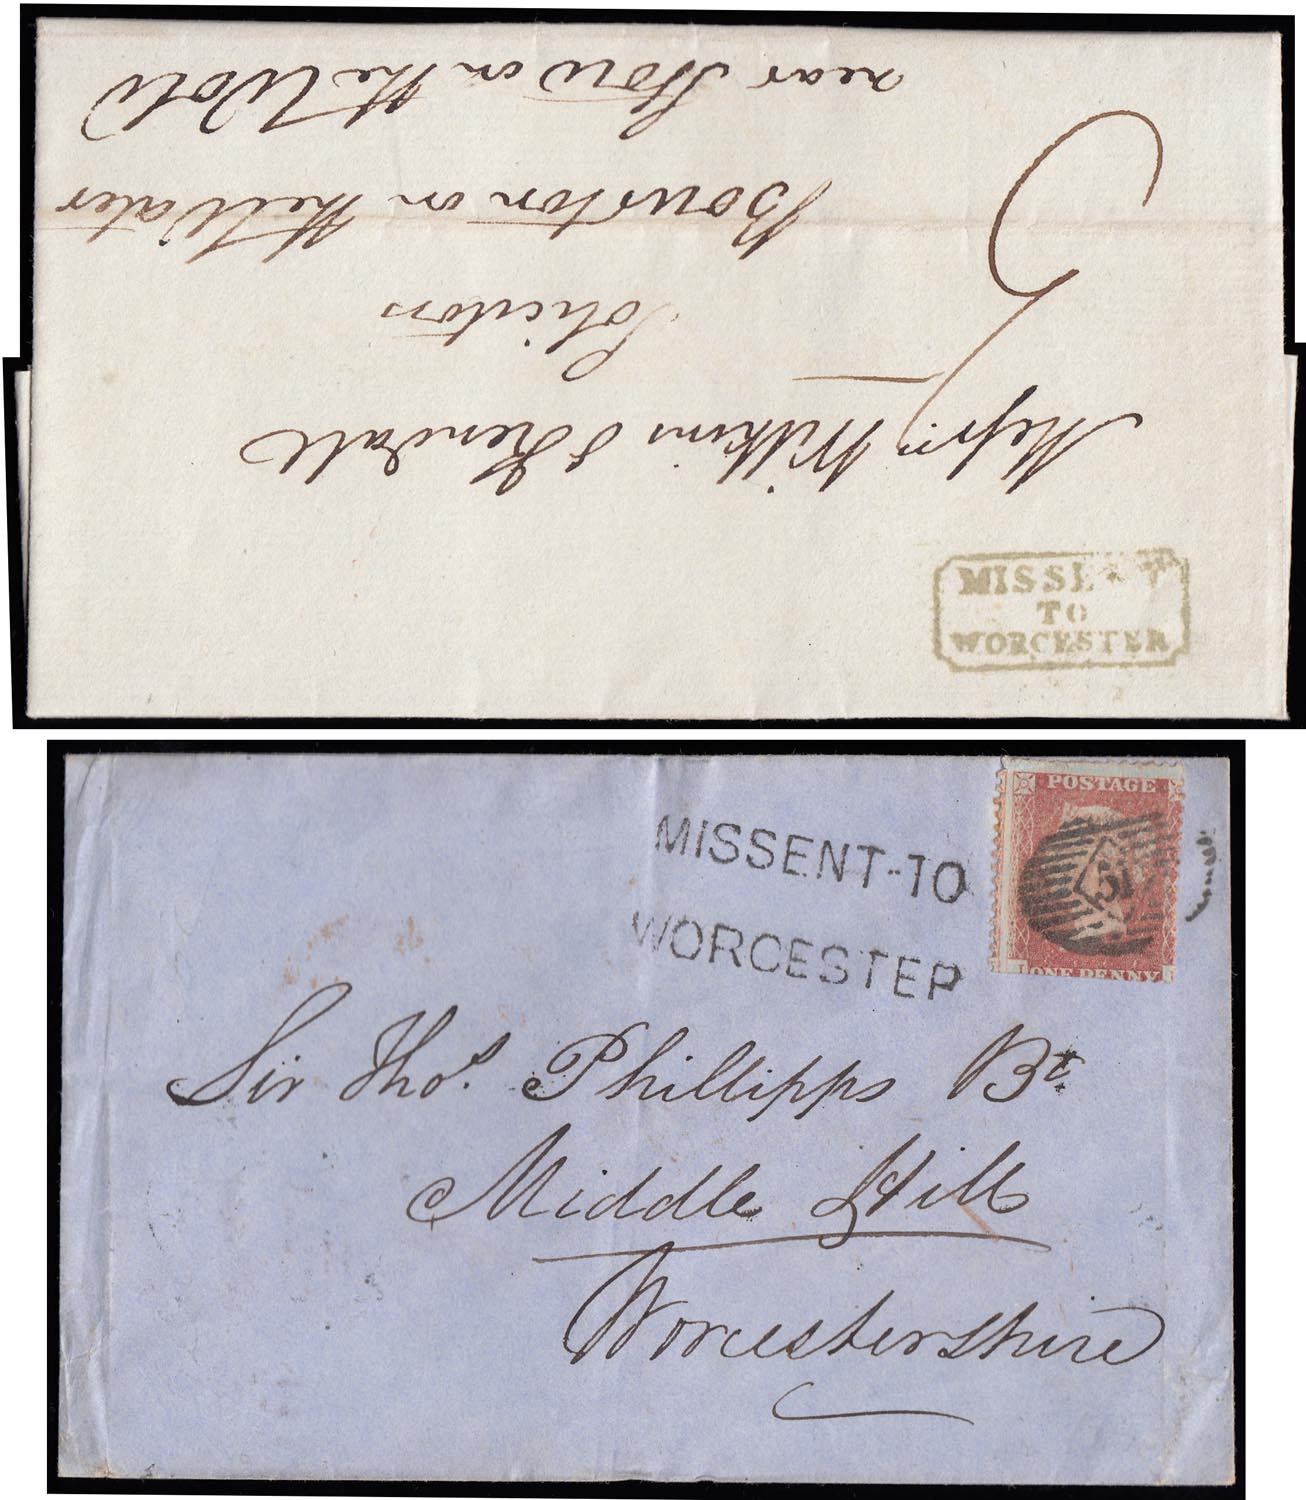 Messrs Wilkins & Kendall
Solicitors
Bourton on the Water
near Stow on the Wold
MISSENT
TO
WORCESTER
POSTAGE
51
ONE PENNY
MISSENT-TO
WORCESTER
Sir Thos. Phillipps Bt.
Middle Hill
Worcestershire